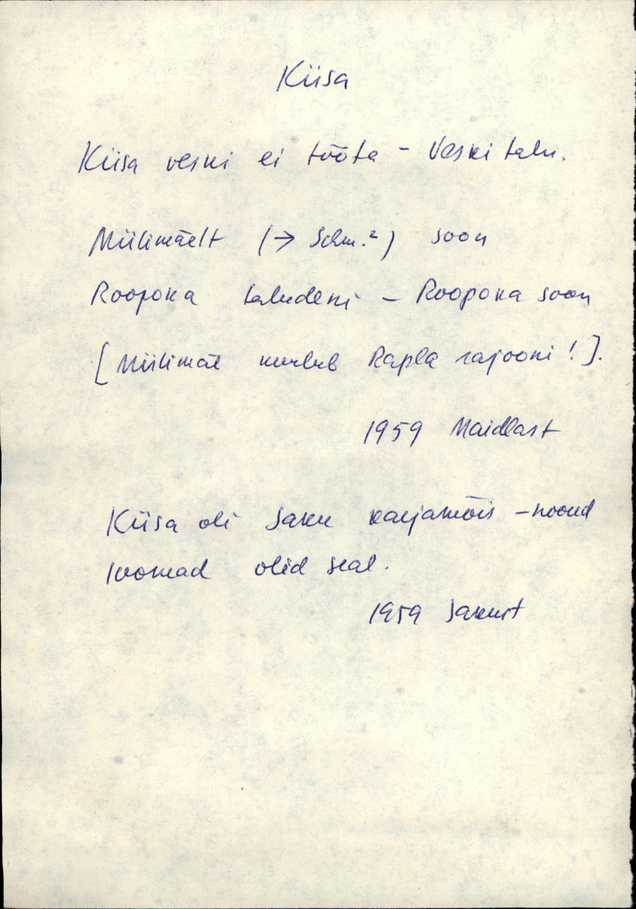 Kiisa
Kiisa veski ei tööta – Veski talu.
Miilimäelt (→ Schm.²) soon
Roopoka taludeni – Roopoka soon
[Miilimäe kuulub Rapla rajooni!].
1959 Maidlast
Kiisa oli Saku karjamõis – noored
loomad olid seal.
1959 Sakust